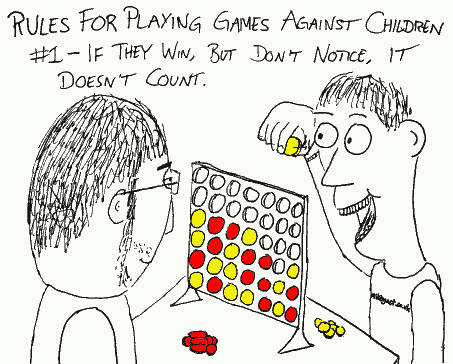 RULES FOR PLAYING GAMES AGAINST CHILDREN
#1 - IF THEY WIN, BUT DON'T NOTICE, IT
DOESN'T COUNT.